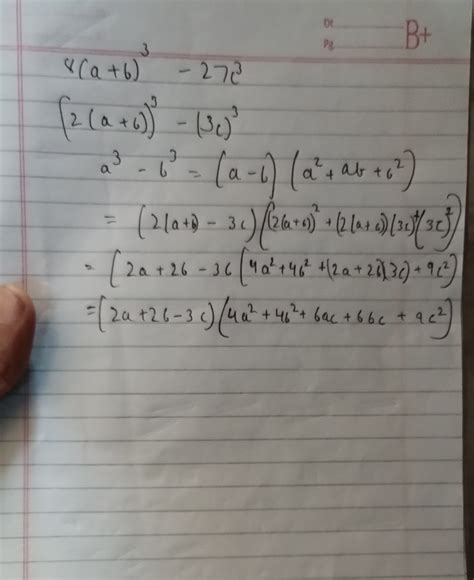 Dt.
Pg. B+
8(a+b)³ - 27c³
(2(a+b))³ - (3c)³
a³ - b³ = (a-b) (a² + ab + b²)
= (2(a+b) - 3c) ((2(a+b))² + (2(a+b)) (3c) + (3c)²)
= (2a + 2b - 3c (4a² + 4b² + (2a + 2b)(3c) + 9c²)
= (2a + 2b - 3c) (4a² + 4b² + 6ac + 6bc + 9c²)